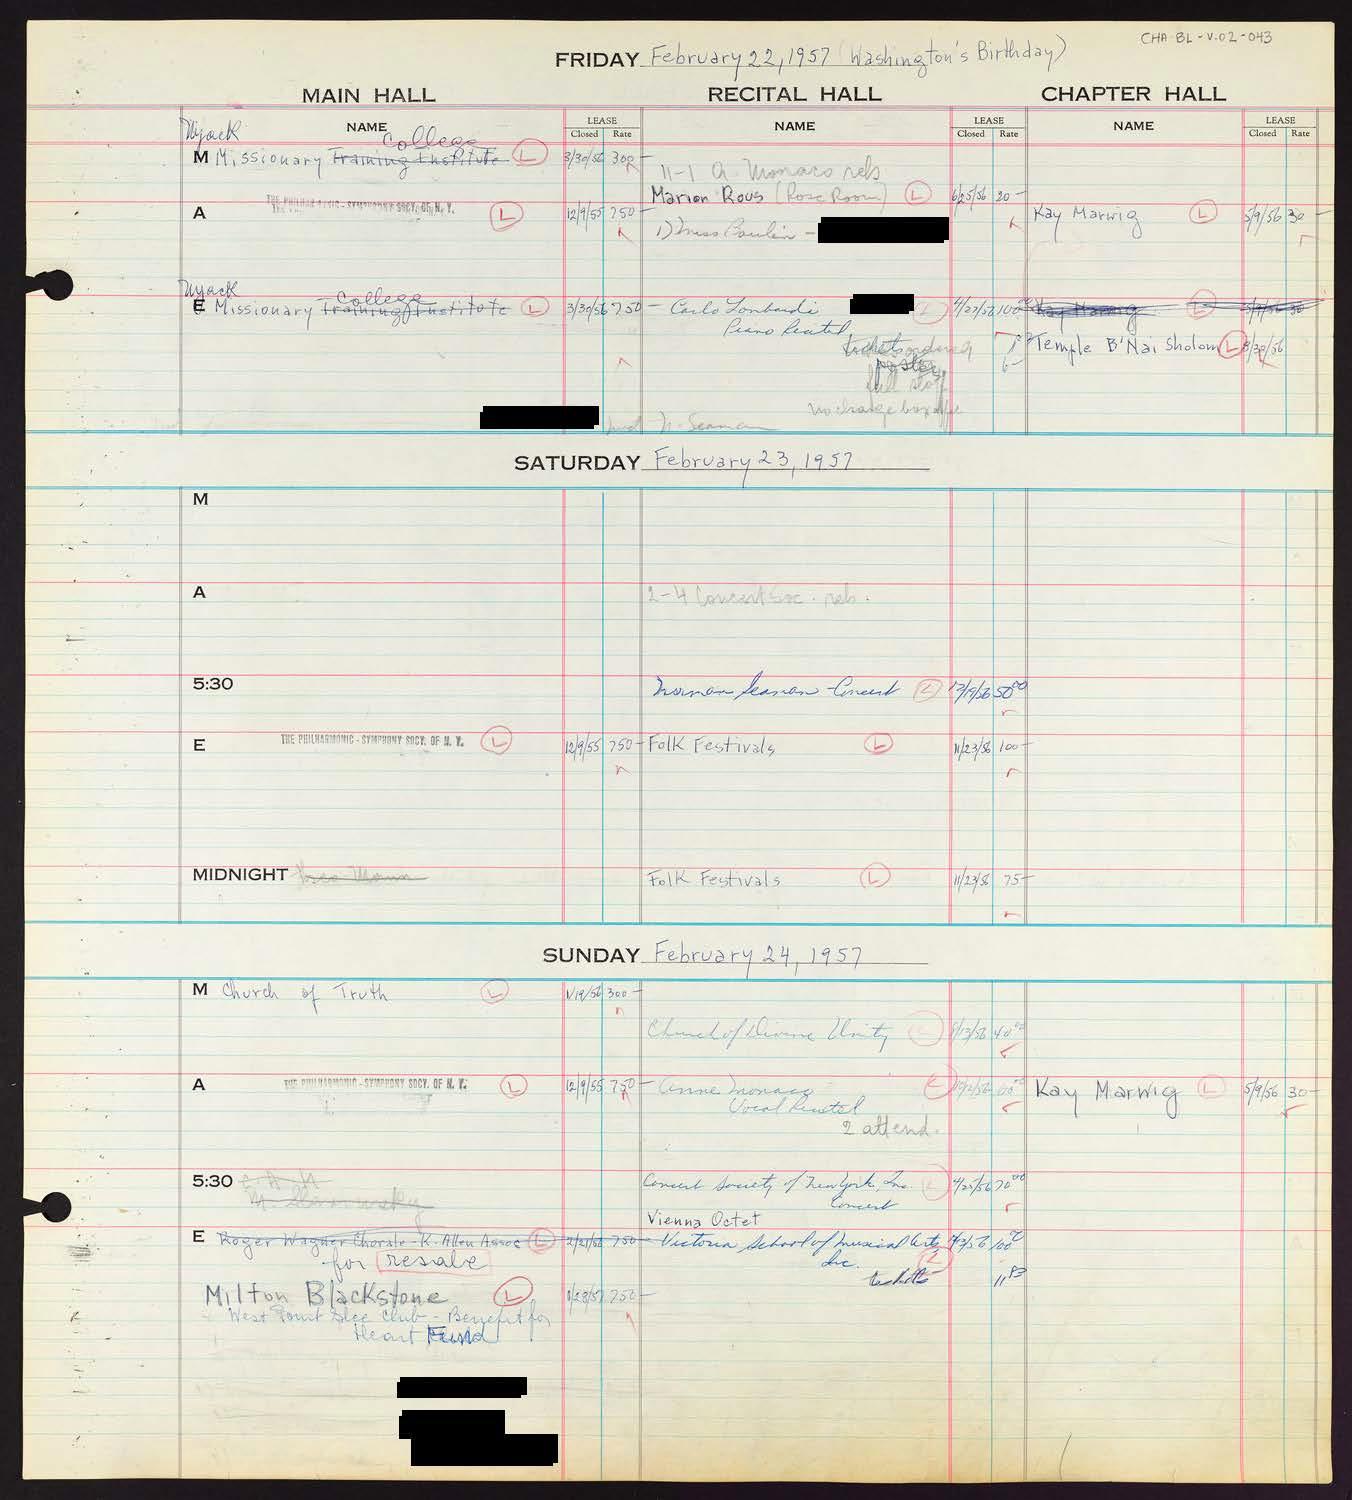 CHA-BL-V.02-043
FRIDAY February 22, 1957 (Washington's Birthday)
MAIN HALL RECITAL HALL CHAPTER HALL
NAME LEASE Closed Rate NAME LEASE Closed Rate NAME LEASE Closed Rate
Nyack College
M Missionary Training Institute L 3/30/56 300-
11-1 A. Monaco reh
Marion Rous (Rose Room) L 6/25/56 20-
A THE PHILHARMONIC-SYMPHONY SOCY. OF N. Y. L 12/9/55 750-
Kay Marwig L 5/9/56 30-
1) Miss Paulin -
Nyack College
E Missionary Training Institute L 3/30/56 750-
Carlo Lombardi L 100
Piano Recital
Kay Marwig L 5/9/56 30
Temple B'Nai Sholom L 8/30/56
poster
full staff
no charge box office
N. Seaman
SATURDAY February 23, 1957
M
A
2-4 Concert Soc. reh.
5:30
Norman Seaman - Concert L 12/19/56 50 00
E THE PHILHARMONIC-SYMPHONY SOCY. OF N. Y. L 12/9/55 750-
Folk Festivals L 11/23/56 100-
MIDNIGHT
Folk Festivals L 11/23/56 75-
SUNDAY February 24, 1957
M Church of Truth L 1/19/56 300-
Church of Divine Unity L 40 00
A THE PHILHARMONIC-SYMPHONY SOCY. OF N. Y. L 12/9/55 750-
Anne Monaco L
Vocal Recital
2 attend.
Kay Marwig L 5/9/56 30-
5:30
Concert Society of New York, Inc. L 70 00
Concert
Vienna Octet
E Roger Wagner Chorale - K. Allen Assoc L 2/21/56 750-
for resale
Victoria School of Musical Arts Inc. L 100
tickets
Milton Blackstone L 1/28/57 750-
West Point Glee Club - Benefit for
Heart Fund